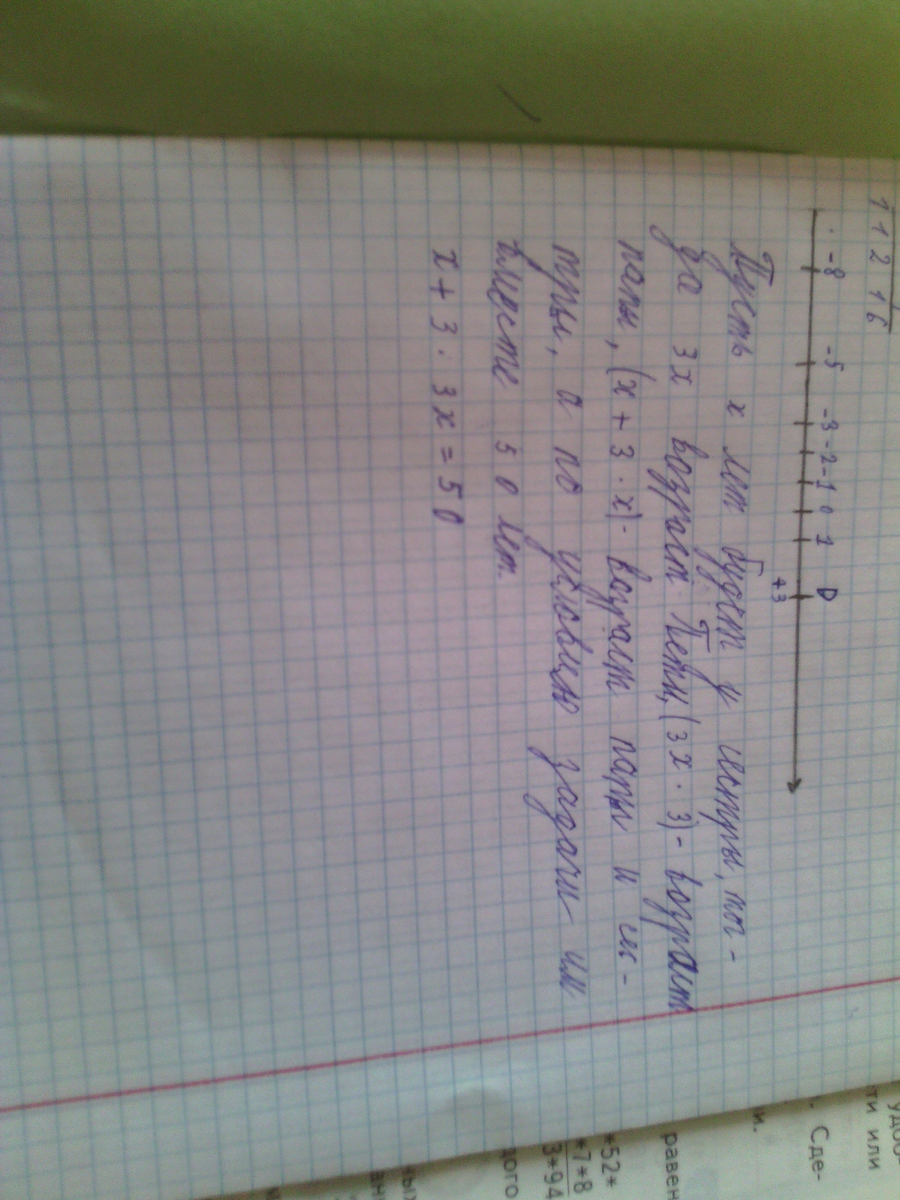 1 1 2 1 6
-8 -5 -3 -2 -1 0 1 D
+3
Пусть х лет будет у сестры, тог-
да 3х возраст Пети, (3х · 3) - возраст
папы, (х + 3 · х) - возраст папы и сес-
тры, а по условию задачи им
вместе 50 лет.
х + 3 · 3х = 50
удоб
сти или
. Сде-
и.
равен
*52*
*7*8
3*94
дого